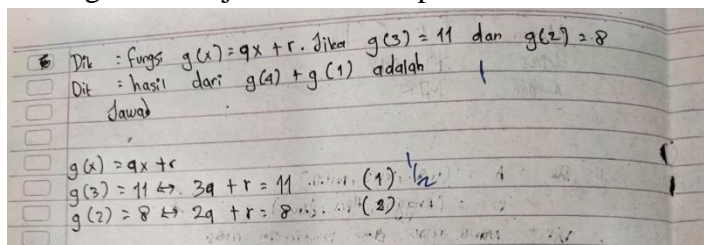 Dik : fungsi g(x) = qx + r. Jika g(3) = 11 dan g(2) = 8
Dit : hasil dari g(4) + g(1) adalah 1
Jawab
g(x) = qx + r
g(3) = 11 ↔ 3q + r = 11 ..... (1) 1/2
g(2) = 8 ↔ 2q + r = 8 ..... (2)